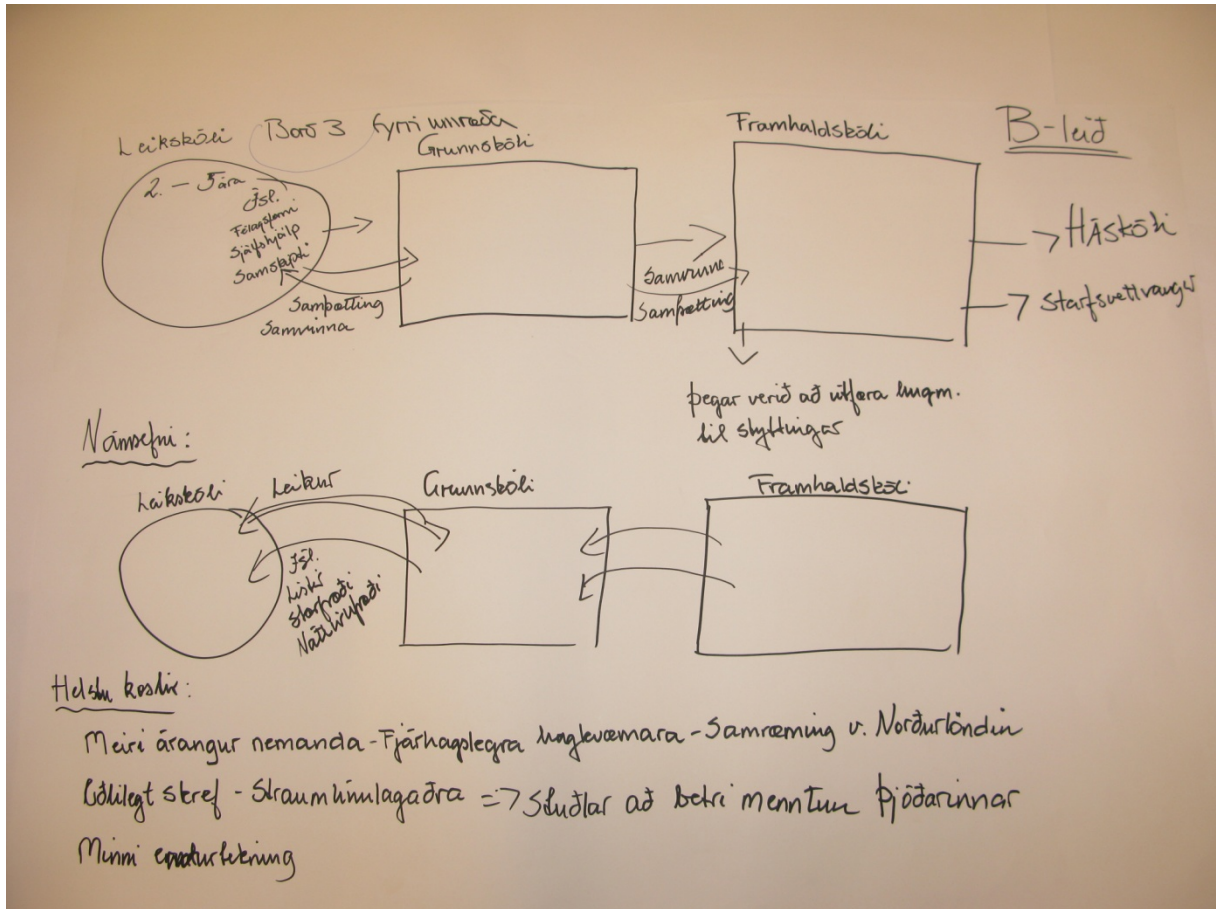 Leikskóli Borð 3 fyrri umræða
Grunnskóli
Framhaldskóli
B-leið
2. - 5 ára
Ísl.
Félagsfærni
Sjálfshjálp
Samskipti
Samþætting
Samvinna
Samvinna
Samþætting
Háskóli
Starfsvettvangur
þegar verið að útfæra hugm.
til styttingar
Námsefni:
Leikskóli
Leikur
Grunnskóli
Framhaldskóli
Ísl.
Listir
Stærfræði
Náttúrufræði
Helstu kostir:
Meiri árangur nemanda - Fjárhagslegra hagkvæmara - Samræming v. Norðurlöndin
Eðlilegt skref - Straumlínulagaðra => Stuðlar að betri menntun þjóðarinnar
Minni endurtekning